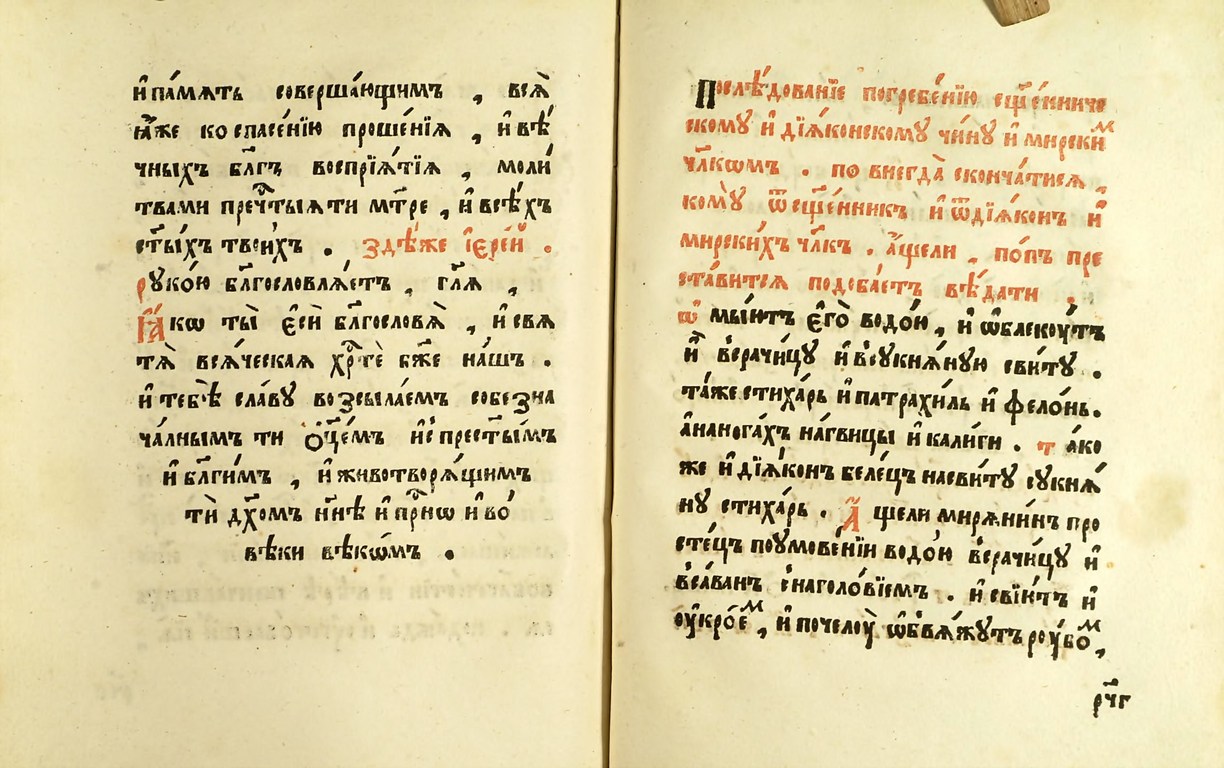 и҆па́мѧть соверша́ющимъ , всѧ̀
ꙗ҆́же ко спасе́нїю проше́нїѧ , и҆вѣ́
чныхъ бл҃гъ воспрїѧ́тїѧ , моли́
твами пречⷭ҇тыѧ ти мт҃ре , и҆всѣ́хъ
ст҃ы́хъ твои́хъ . здѣ́же і҆ере́й .
руко́ю бл҃гословлѧ́етъ , гл҃ѧ ,
Ꙗ҆́кѡ ты̀ є҆сѝ бл҃гословѧ̀ , и҆свѧ
тѧ̀ всѧ́ческаѧ хрⷭ҇тѐ бж҃е на́шъ .
и҆тебѣ̀ сла́ву возсыла́емъ собезна
ча́лнымъ ти ѻ҆ц҃е́мъ и҆с̾прест҃ы́мъ
и҆бл҃ги́мъ , и҆животворѧ́щимъ
тѝ дх҃омъ нн҃ѣ и҆прⷭ҇нѡ и҆во́
вѣ́ки вѣкѡ́мъ .
Послѣ́дованїе погребе́нїю сщ҃е́нниче
скому и҆дїѧ́конскому чи́ну и҆мирски́ⷨ
чл҃кѡмъ . по внегда̀ сконча́тисѧ ,
кому̀ ѿсщ҃е́нникъ и҆ѿдїѧ́конъ и҆
мирски́хъ чл҃къ . а҆́щели , по́пъ пре
ста́витсѧ подоба́етъ вѣ́дати .
ѡ҆ мы́итъ є҆го̀ водо́ю , и҆ ѡ҆блеку́тъ
и҆ верачи́цу и҆всукнѧ́ную сви́ту .
та́же стиха́рь и҆патрахи́ль и҆ фело́нь.
а҆нанога́хъ на́гвицы и҆кали́ги . тѧко
же и҆дїѧ́конъ беле́цъ насви́ту сукнѧ́
ну стиха́рь . А҆ щели мирѧ́нинъ про
сте́цъ поумове́нїи водо́ю верачи́цу и҆
всава́нъ снаголо́вїемъ . и҆свїю́тъ и҆
ѹ҆кро́еⷨ , и҆почелоу̀ ѡ҆бвѧ́жутъ роубо́ⷨ ,
рч҃г